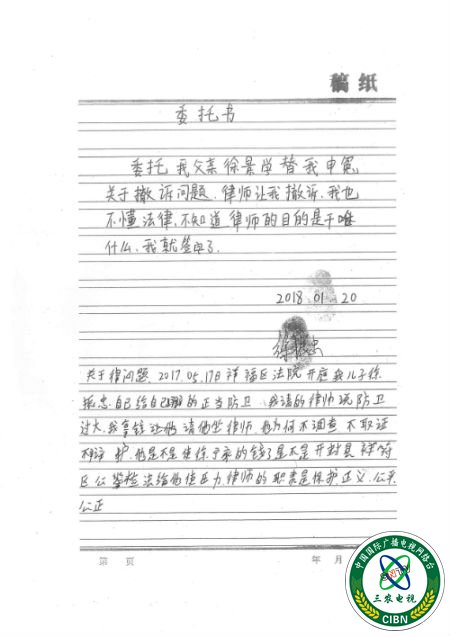 稿纸
委托书
委托我父亲徐景学替我申冤
关于撤诉问题.律师让我撤诉.我也
不懂法律,不知道律师的目的是干唯
什么.我就签字了.
2018.01.20
徐振忠
关于律问题.2017.05.17日祥福区法院开庭我儿子徐
振忠自己给自己的正当防卫 我请的律师说防卫
过大,我拿钱让他请他坐律师 为何不调查 不取证
护.他是不是 家的钱了是不是开封县祥符
区公 检法给他值压力律师的职责是保护正义.公平
公正
第 页
年 月
中国国际广播电视网络台
三农电视
CIBN